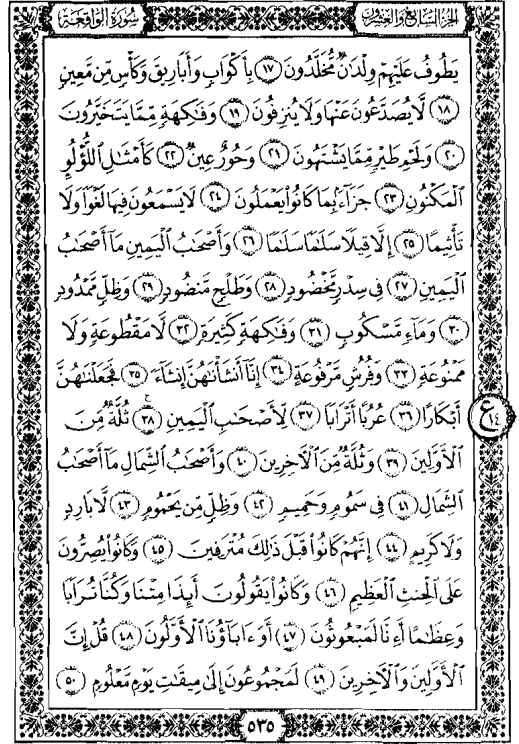 الجزء السابع والعشرون سورة الواقعة
يَطُوفُ عَلَيْهِمْ وِلْدَٰنٌ مُّخَلَّدُونَ ١٧ بِأَكْوَابٍ وَأَبَارِيقَ وَكَأْسٍ مِّن مَّعِينٍ
١٨ لَّا يُصَدَّعُونَ عَنْهَا وَلَا يُنزِفُونَ ١٩ وَفَٰكِهَةٍ مِّمَّا يَتَخَيَّرُونَ
٢٠ وَلَحْمِ طَيْرٍ مِّمَّا يَشْتَهُونَ ٢١ وَحُورٌ عِينٌ ٢٢ كَأَمْثَٰلِ ٱللُّؤْلُوِٕ
ٱلْمَكْنُونِ ٢٣ جَزَآءًۢ بِمَا كَانُوا۟ يَعْمَلُونَ ٢٤ لَا يَسْمَعُونَ فِيهَا لَغْوًا وَلَا
تَأْثِيمًا ٢٥ إِلَّا قِيلًا سَلَٰمًا سَلَٰمًا ٢٦ وَأَصْحَٰبُ ٱلْيَمِينِ مَآ أَصْحَٰبُ
ٱلْيَمِينِ ٢٧ فِى سِدْرٍ مَّخْضُودٍ ٢٨ وَطَلْحٍ مَّنضُودٍ ٢٩ وَظِلٍّ مَّمْدُودٍ
٣٠ وَمَآءٍ مَّسْكُوبٍ ٣١ وَفَٰكِهَةٍ كَثِيرَةٍ ٣٢ لَّا مَقْطُوعَةٍ وَلَا
مَمْنُوعَةٍ ٣٣ وَفُرُشٍ مَّرْفُوعَةٍ ٣٤ إِنَّآ أَنشَأْنَٰهُنَّ إِنشَآءً ٣٥ فَجَعَلْنَٰهُنَّ
أَبْكَارًا ٣٦ عُرُبًا أَتْرَابًا ٣٧ لِّأَصْحَٰبِ ٱلْيَمِينِ ٣٨ ثُلَّةٌ مِّنَ
ع ١٤
ٱلْأَوَّلِينَ ٣٩ وَثُلَّةٌ مِّنَ ٱلْءَاخِرِينَ ٤٠ وَأَصْحَٰبُ ٱلشِّمَالِ مَآ أَصْحَٰبُ
ٱلشِّمَالِ ٤١ فِى سَمُومٍ وَحَمِيمٍ ٤٢ وَظِلٍّ مِّن يَحْمُومٍ ٤٣ لَّا بَارِدٍ
وَلَا كَرِيمٍ ٤٤ إِنَّهُمْ كَانُوا۟ قَبْلَ ذَٰلِكَ مُتْرَفِينَ ٤٥ وَكَانُوا۟ يُصِرُّونَ
عَلَى ٱلْحِنثِ ٱلْعَظِيمِ ٤٦ وَكَانُوا۟ يَقُولُونَ أَئِذَا مِتْنَا وَكُنَّا تُرَابًا
وَعِظَٰمًا أَءِنَّا لَمَبْعُوثُونَ ٤٧ أَوَءَابَآؤُنَا ٱلْأَوَّلُونَ ٤٨ قُلْ إِنَّ
ٱلْأَوَّلِينَ وَٱلْءَاخِرِينَ ٤٩ لَمَجْمُوعُونَ إِلَىٰ مِيقَٰتِ يَوْمٍ مَّعْلُومٍ ٥٠
٥٣٥